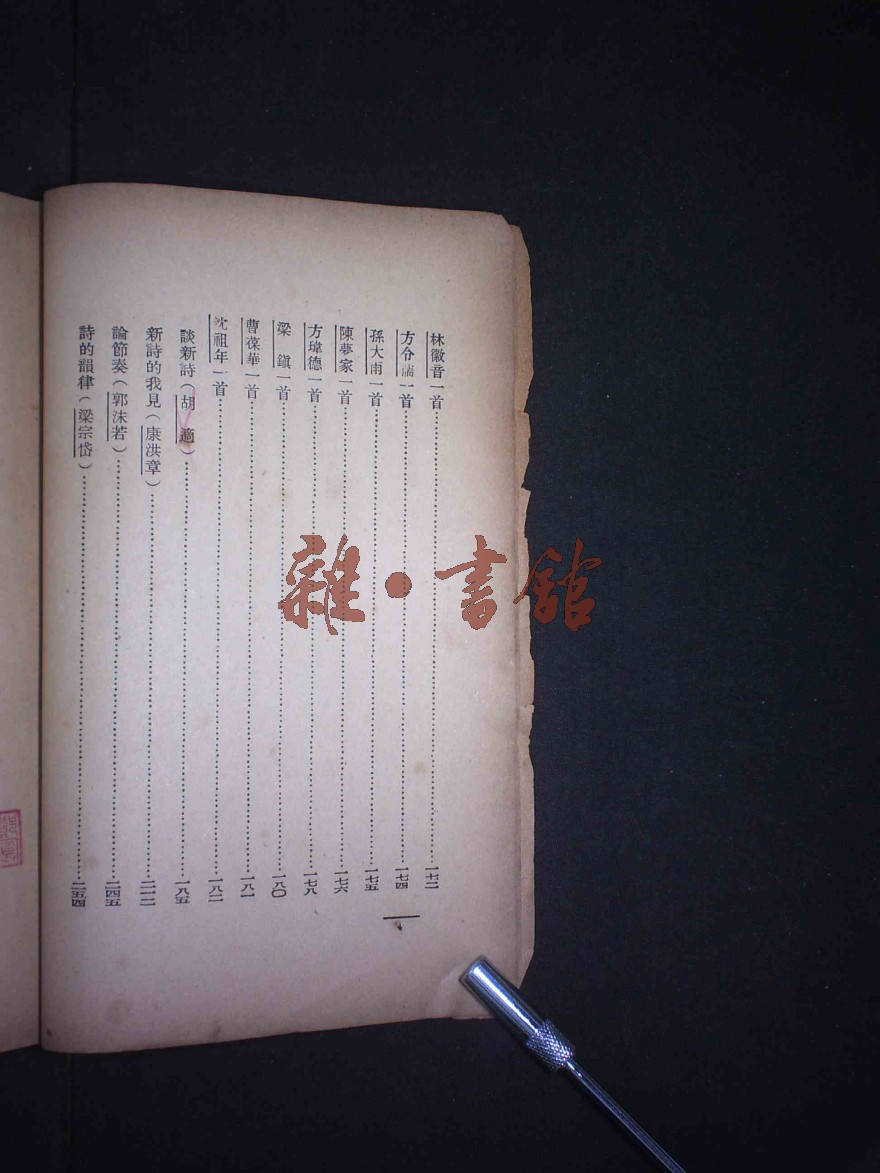 林徽音一首……一七二
方令孺一首……一七四
孫大雨一首……一七五
陳夢家一首……一七六
方瑋德一首……一七八
梁　鎮一首……一八〇
曹葆華一首……一八一
沈祖年一首……一八二
談新詩（胡　適）……一八五
新詩的我見（康洪章）……二一二
論節奏（郭沫若）……二四五
詩的韻律（梁宗岱）……二五四
雜·書館